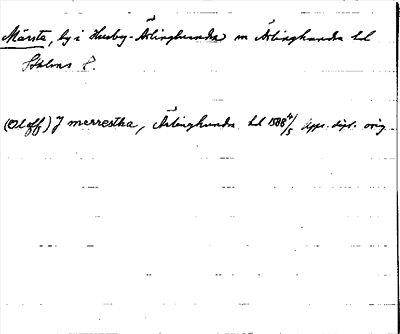 Märsta, by i Husby-Ärlinghundra sn Ärlinghundra hd
Sthlms l.
(Oleff) J merrestha, Ärlinghundra hd 1508 4/5 Upps. dipl. orig